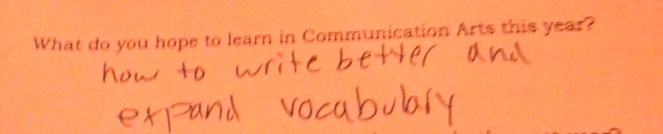 What do you hope to learn in Communication Arts this year?
how to write better and
expand vocabulary